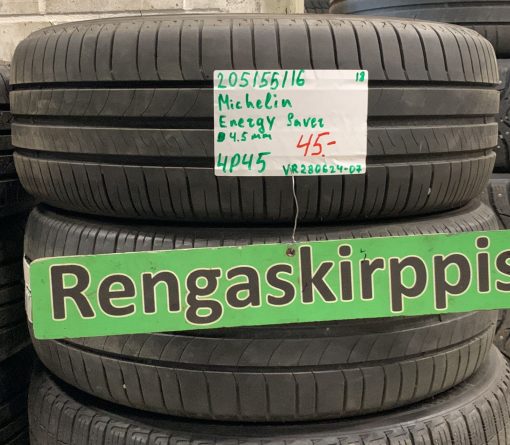 205/55/16 18
Michelin
Energy Saver
4.5 mm 45.-
4P45 VR280624-07
Rengaskirppis